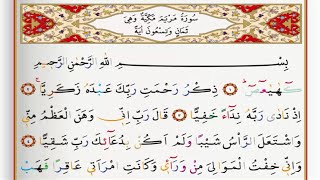 سُورَةُ مَرْيَمَ مَكِّيَّةٌ وَهِيَ
ثَمَانٍ وَتِسْعُونَ اٰيَةً
بِسْمِ اللّٰهِ الرَّحْمٰنِ الرَّحِيمِ
كٓهٰيٰعٓصٓ ﴿١﴾ ذِكْرُ رَحْمَتِ رَبِّكَ عَبْدَهُ زَكَرِيَّا ﴿٢﴾
اِذْ نَادٰى رَبَّهُ نِدَٓاءً خَفِيًّا ﴿٣﴾ قَالَ رَبِّ اِنّ۪ي وَهَنَ الْعَظْمُ مِنّ۪ي
وَاشْتَعَلَ الرَّأْسُ شَيْبًا وَلَمْ اَكُنْ بِدُعَٓائِكَ رَبِّ شَقِيًّا ﴿٤﴾
وَاِنّ۪ي خِفْتُ الْمَوَالِيَ مِنْ وَرَٓائ۪ي وَكَانَتِ امْرَاَت۪ي عَاقِرًا فَهَبْ